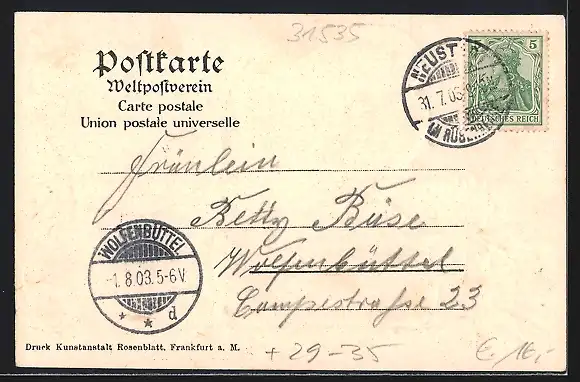 31535
Postkarte
Weltpostverein
Carte postale
Union postale universelle
NEUST
31.7.03
AM RÜBENB
5
DEUTSCHES REICH
Fräulein
Betty Büse
Wolfenbüttel
Campestraße 23
WOLFENBÜTTEL
-1.8.03.5-6V
* * d
Druck Kunstanstalt Rosenblatt, Frankfurt a. M.
+ 29-35
€ 16,-